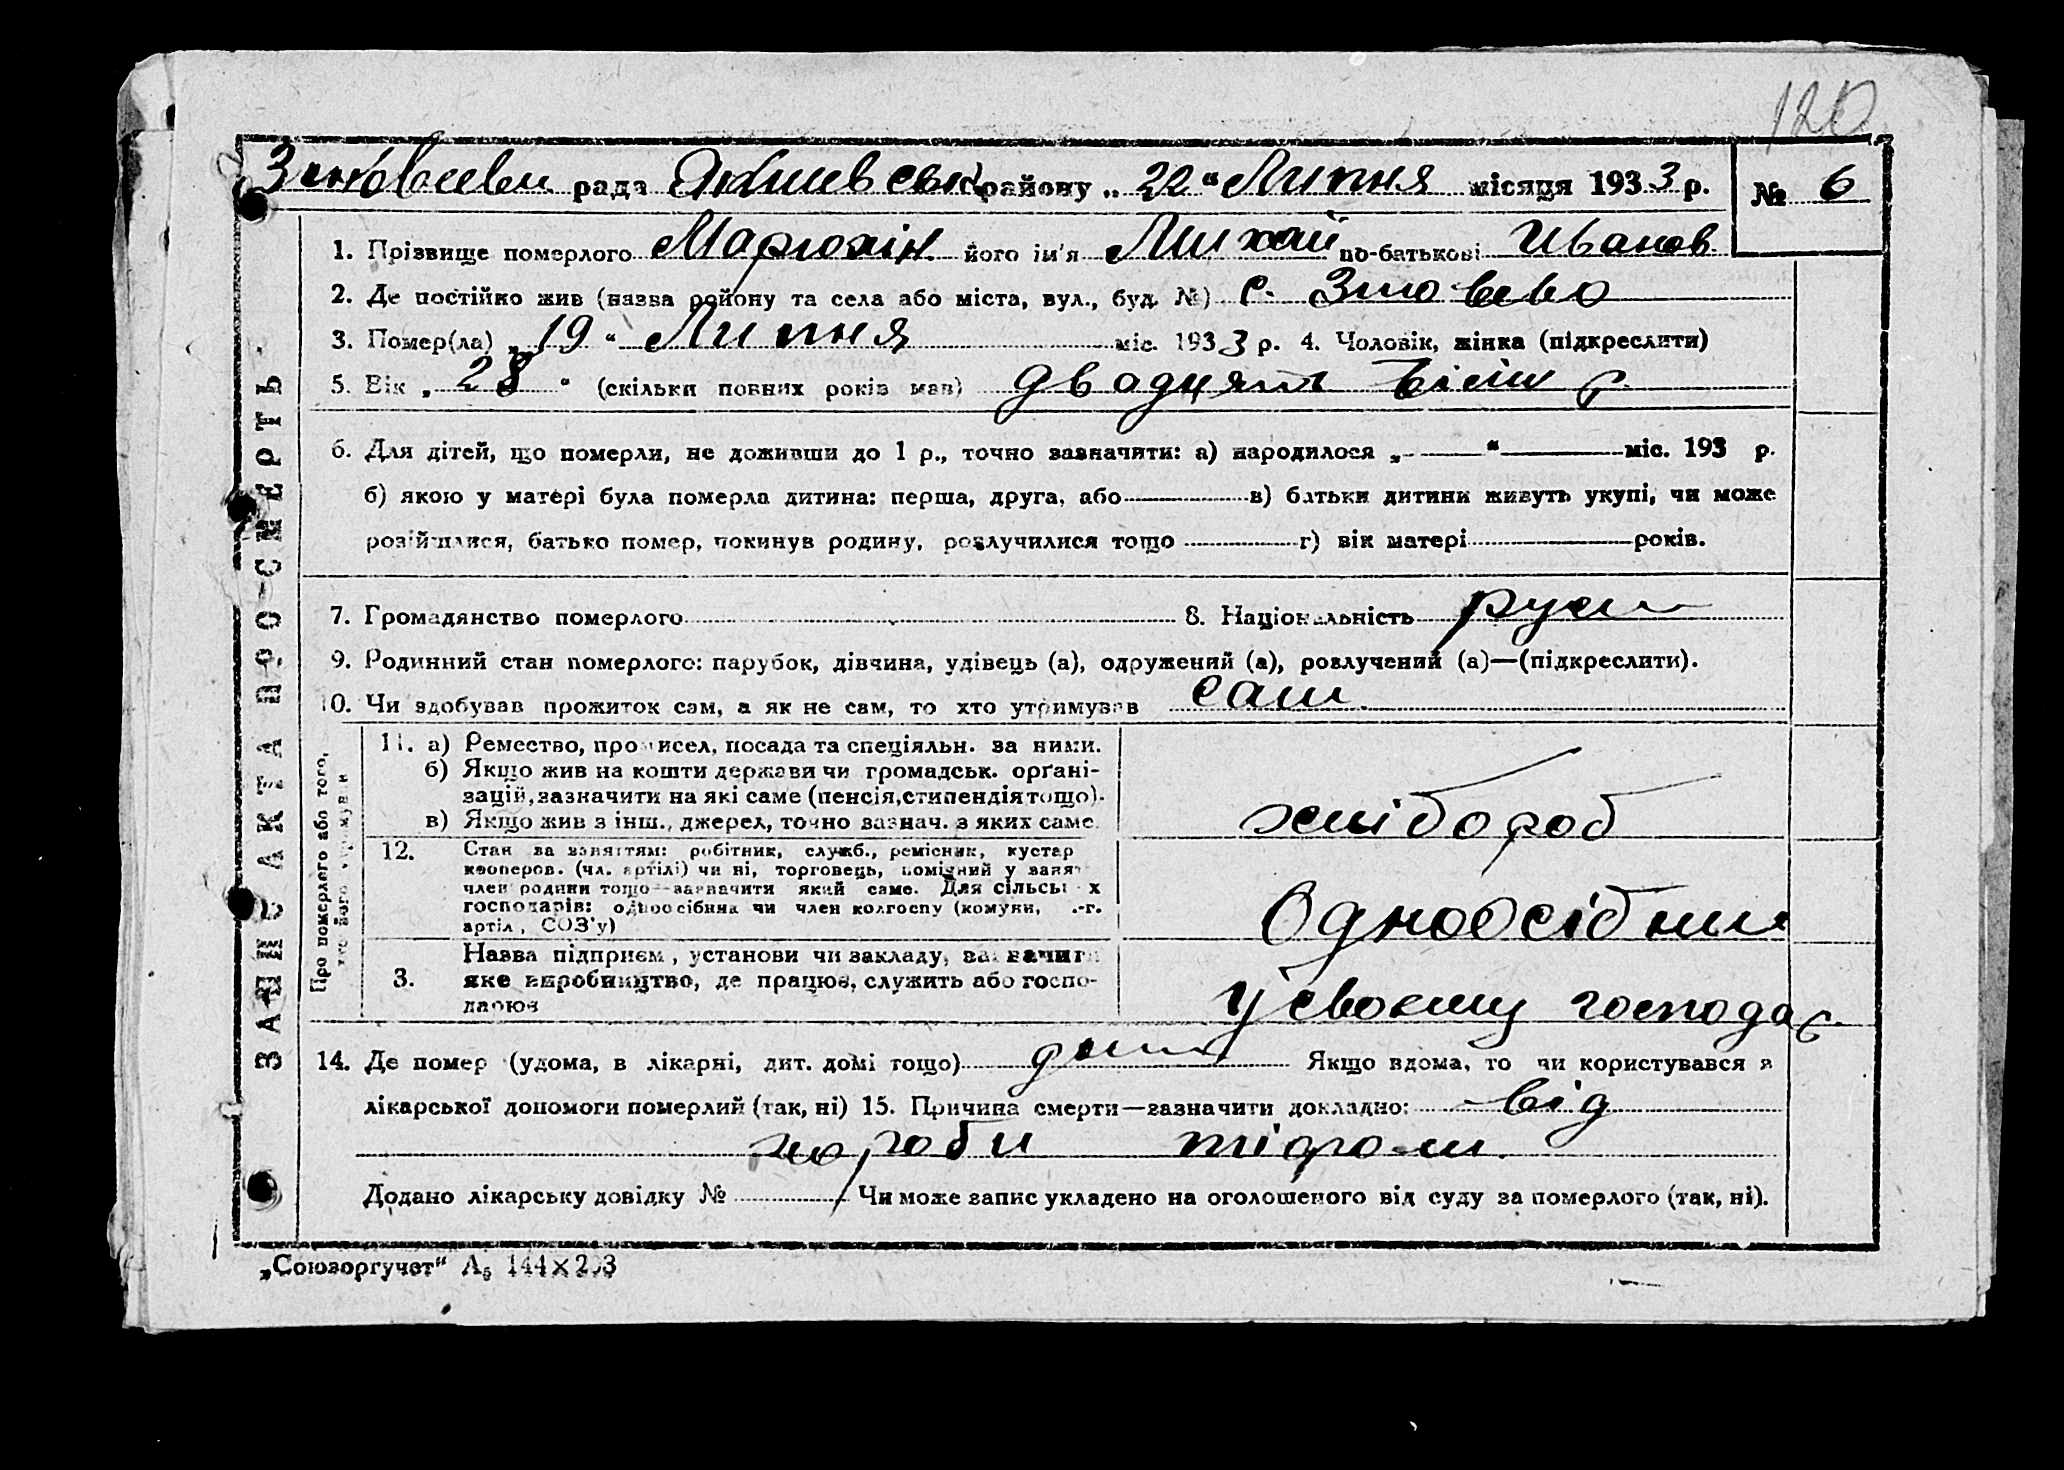 120
рада района „ 22 “ Липня місяця 1933 р. № 6
1. Прізвище померлого Марюхін його ім'я Михай по-батькові Иванов.
2. Де постійно жив (назва району та села або міста, вул., буд. №) с.
3. Помер(ла) „ 19 “ Липня міс. 1933 р. 4. Чоловік, жінка (підкреслити)
5. Вік „ 28 “ (скільки повних років мав) двадцять вісім р.
6. Для дітей, що померли, не доживши до 1 р., точно зазначити: а) народилося „ — “ — міс. 193 р.
б) якою у матері була померла дитина: перша, друга, або в) батьки дитини живуть укупі, чи може
розійшлися, батько помер, покинув родину, розлучилися тощо г) вік матері років.
7. Громадянство померлого 8. Національність руси
9. Родинний стан померлого: парубок, дівчина, удівець (а), одружений (а), розлучений (а)—(підкреслити).
10. Чи здобував прожиток сам, а як не сам, то хто утримував сам.
ЗАПИС АКТА ПРО СМЕРТЬ
Про померлого або того, хто його утримував
11. а) Ремество, промисел, посада та спеціяльн. за ними.
б) Якщо жив на кошти держави чи громадськ. орґані-
зацій, зазначити на які саме (пенсія, стипендія тощо).
в) Якщо жив з інш., джерел, точно зазнач. з яких саме
хлібороб
12. Стан за заняттям: робітник, служб., ремісник, кустар
кооперов. (чл. артілі) чи ні, торговець, помічний у занят
член родини тощо—зазначити який саме. Для сільськ х
господарів: одноосібник чи член колгоспу (комуни, .-г.
артіл , СОЗ'у)
Одноосібник
Назва підприєм , установи чи закладу, зазначити
3. яке виробництво, де працює, служить або госпо-
дарює
У своєму господар.
14. Де помер (удома, в лікарні, дит. домі тощо) дома Якщо вдома, то чи користувався з
лікарської допомоги померлий (так, ні) 15. Причина смерти—зазначити докладно: від
хороби
Додано лікарську довідку № Чи може запис укладено на оголошеного від суду за померлого (так, ні).
„Союзоргучет“ А₅ 144×203